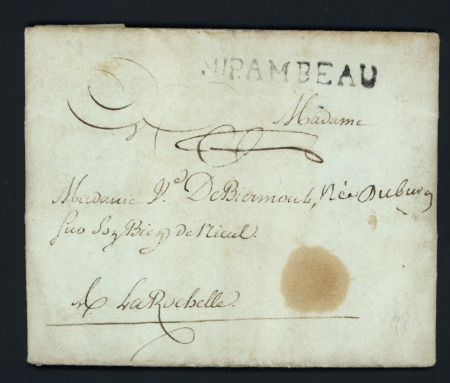 MIRAMBEAU
Madame
Madame V.e De Biemont, née
sur son Bien de Nieul.
A LaRochelle.